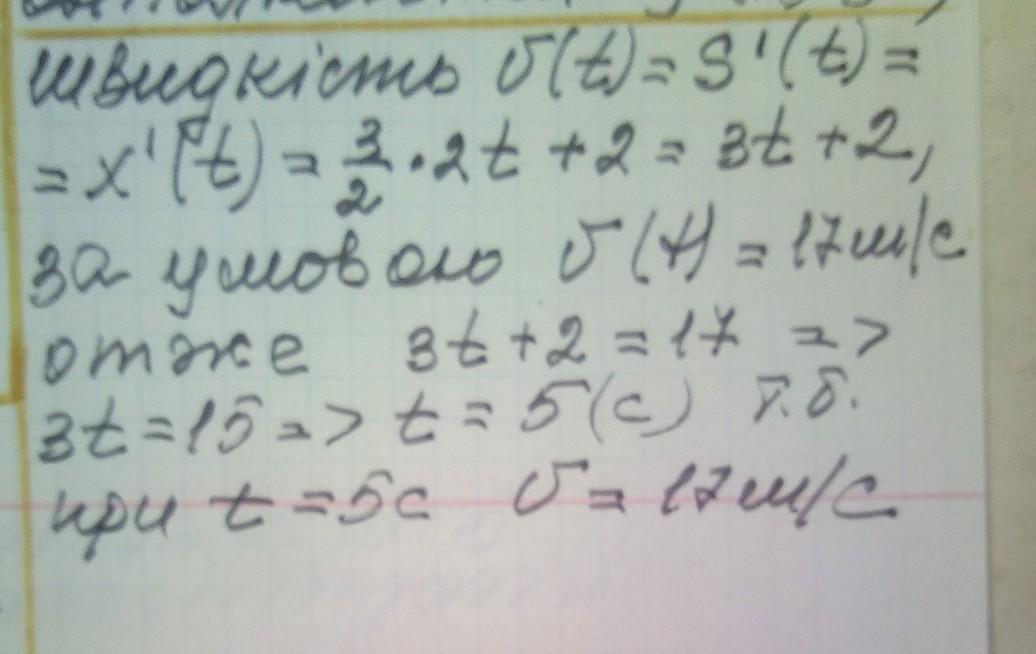 швидкість v(t) = S'(t) =
= x'(t) = 3/2 · 2t + 2 = 3t + 2,
за умовою v(t) = 17 м/с
отже 3t + 2 = 17 =>
3t = 15 => t = 5 (с) т.б.
при t = 5с v = 17 м/с